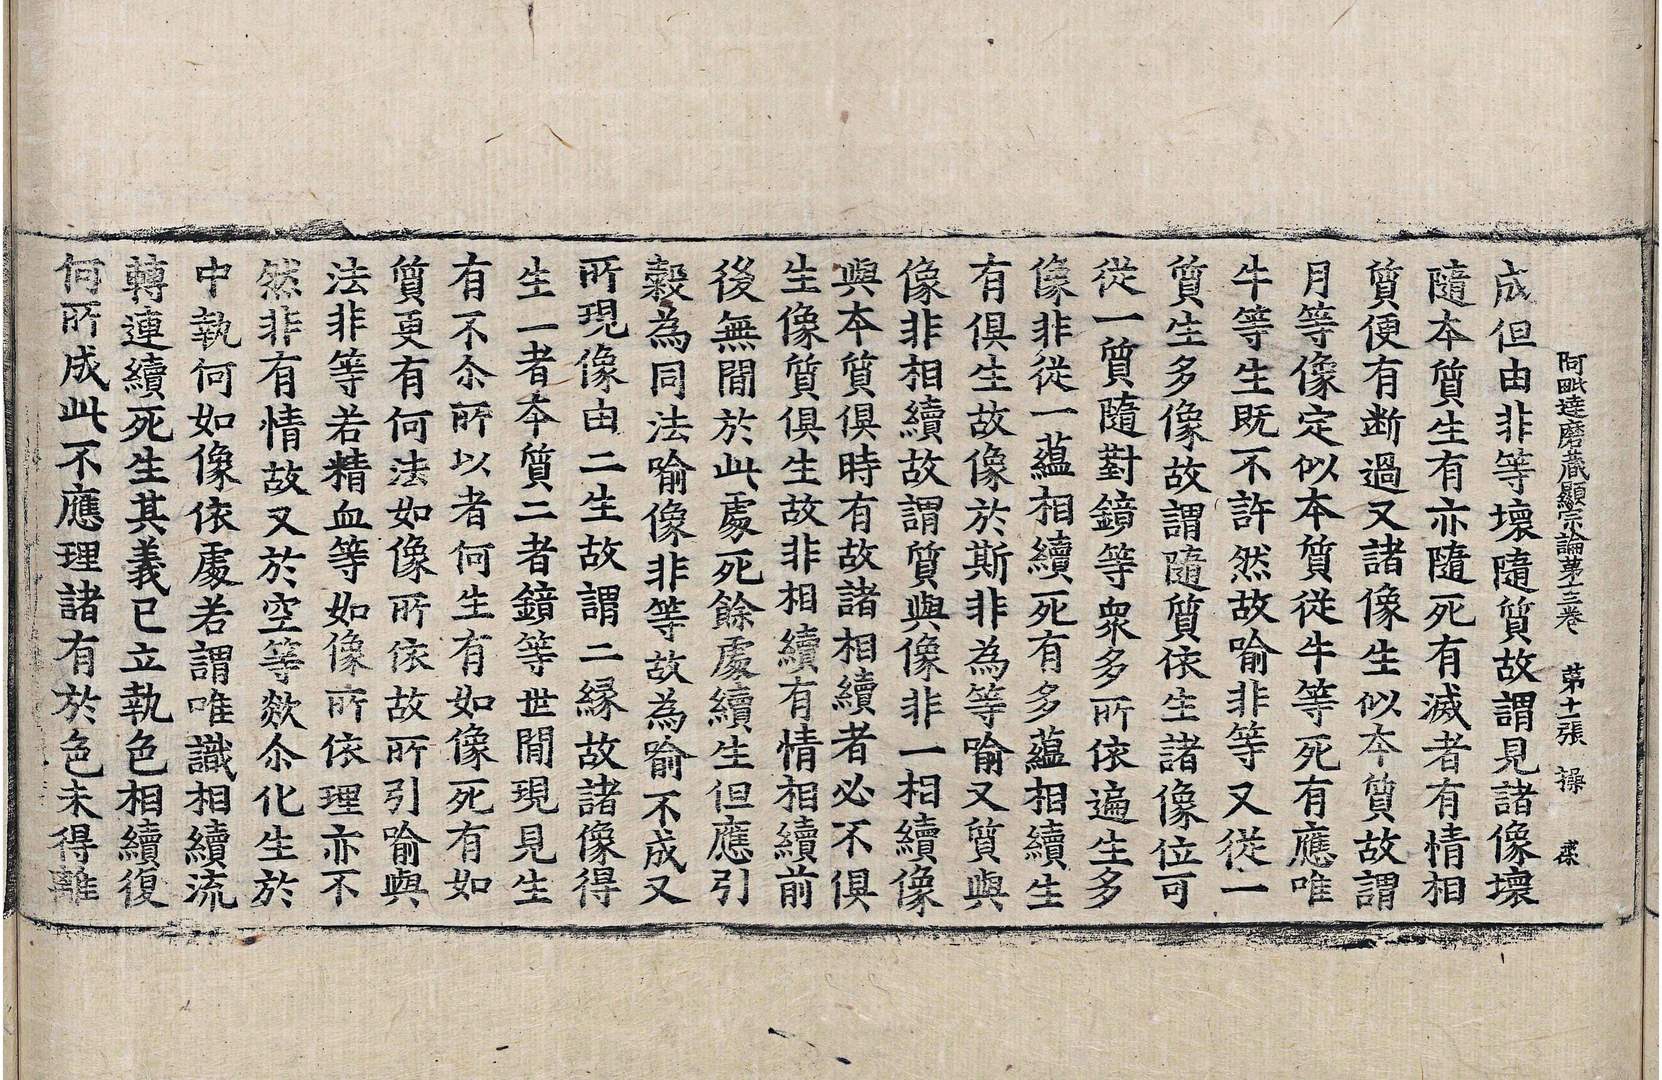 阿毗達磨藏顯宗論第十三卷 第十一張 操
成但由非等壞隨質故謂見諸像壞
隨本質生有亦隨死有滅者有情相
質便有斷過又諸像生似本質故謂
月等像定似本質從牛等死有應唯
牛等生旣不許然故喻非等又從一
質生多像故謂隨質依生諸像位可
從一質隨對鏡等衆多所依遍生多
像非從一蘊相續死有多蘊相續生
有俱生故像於斯非為等喻又質與
像非相續故謂質與像非一相續像
與本質俱時有故諸相續者必不俱
生像質俱生故非相續有情相續前
後無間於此處死餘處續生但應引
穀為同法喻像非等故為喻不成又
所現像由二生故謂二緣故諸像得
生一者本質二者鏡等世間現見生
有不尒所以者何生有如像死有如
質更有何法如像所依故所引喻與
法非等若精血等如像所依理亦不
然非有情故又於空等欻尒化生於
中執何如像依處若謂唯識相續流
轉連續死生其義已立執色相續復
何所成此不應理諸有於色未得離